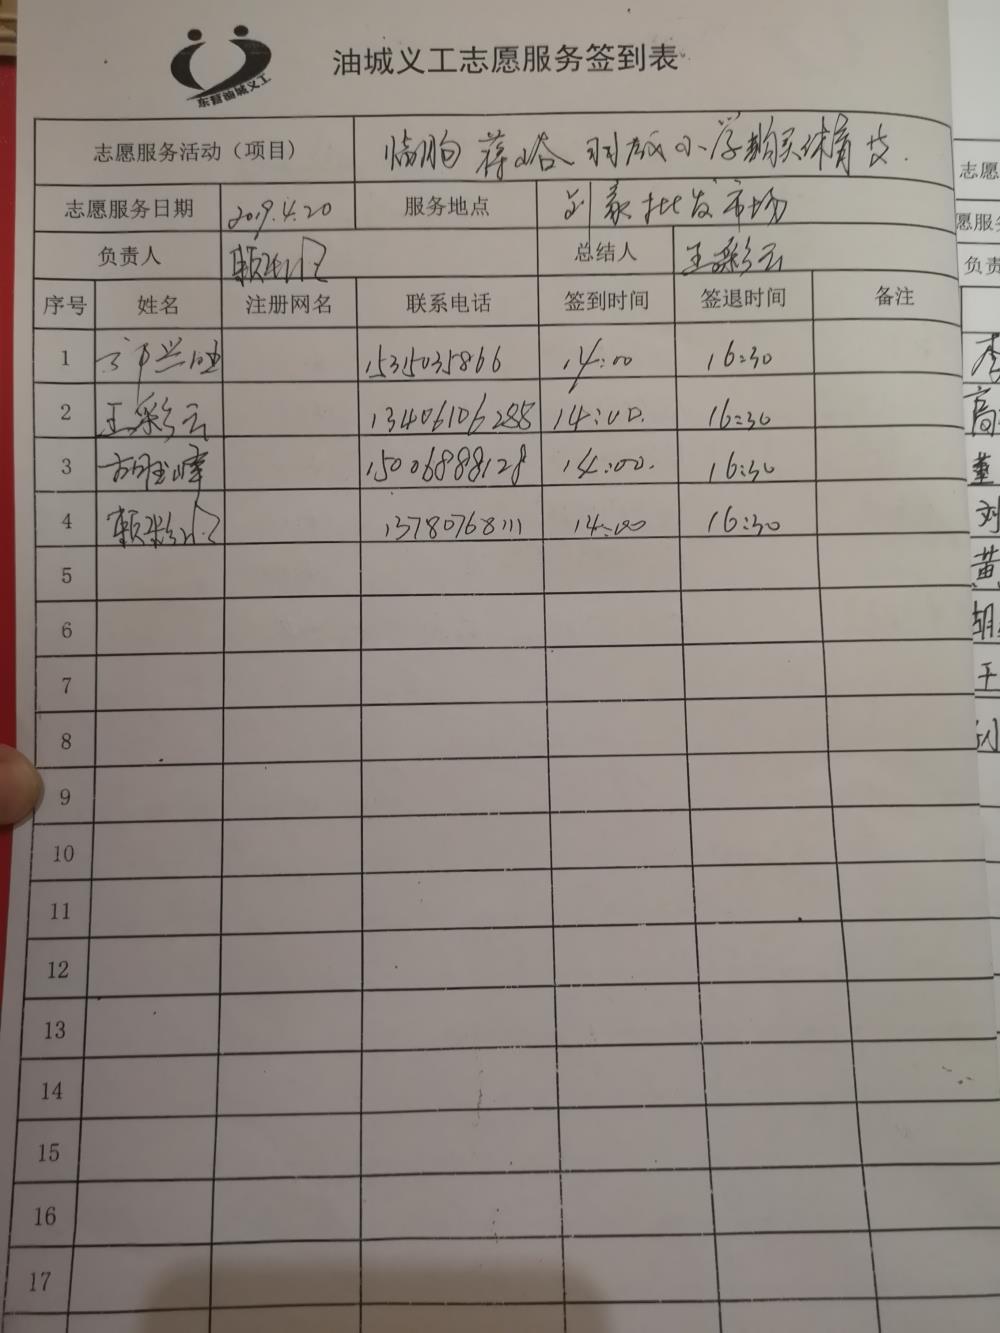 油城义工志愿服务签到表
东营油城义工
志愿服务活动（项目） 临朐蒋峪 小学购买体育
志愿服务日期 2019.4.20 服务地点 批发市场
负责人 总结人 王彩云
序号 姓名 注册网名 联系电话 签到时间 签退时间 备注
1 15315035866 14:00 16:30
2 王彩云 13406106288 14:00. 16:30
3 胡玉峰 15006888128 14:00. 16:30
4 13780768111 14:00 16:30
5
6
7
8
9
10
11
12
13
14
15
16
17
志愿
愿服务
负责
李
高
董
刘
黄
胡
王